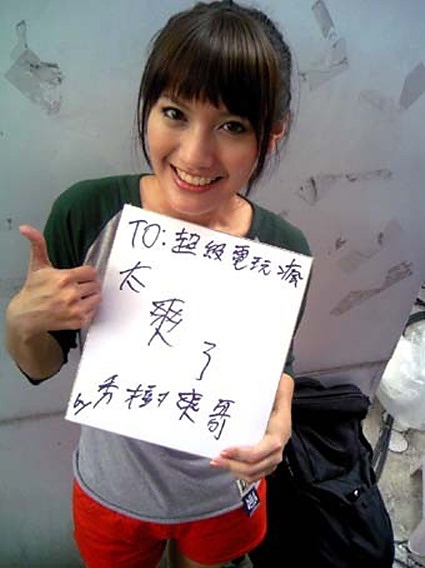 TO:超級電玩瘋
太
爽
了
by 秀樹爽哥